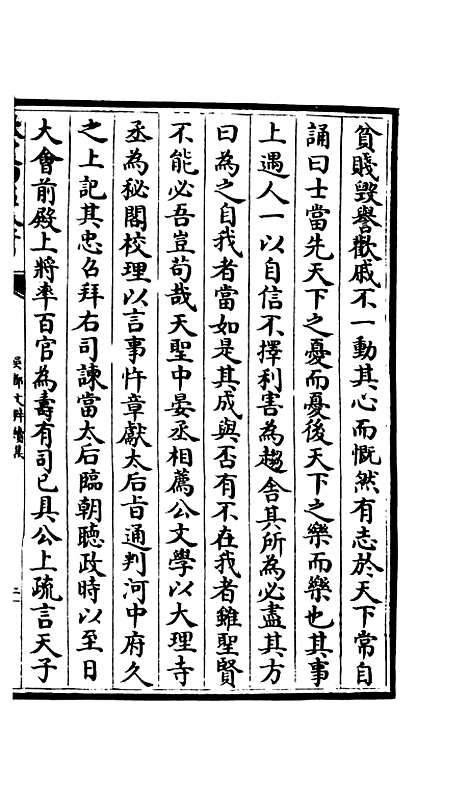 貧賤毀譽歡戚不一動其心而慨然有志於天下常自
誦曰士當先天下之憂而憂後天下之樂而樂也其事
上遇人一以自信不擇利害為趨舎其所為必盡其方
曰為之自我者當如是其成與否有不在我者雖聖賢
不能必吾豈苟哉天聖中晏丞相薦公文學以大理寺
丞為秘閣校理以言事忤章獻太后㫖通判河中府久
之上記其忠召拜右司諫當太后臨朝聽政時以至日
大會前殿上將率百官為壽有司已具公上疏言天子
吳都文粹續集